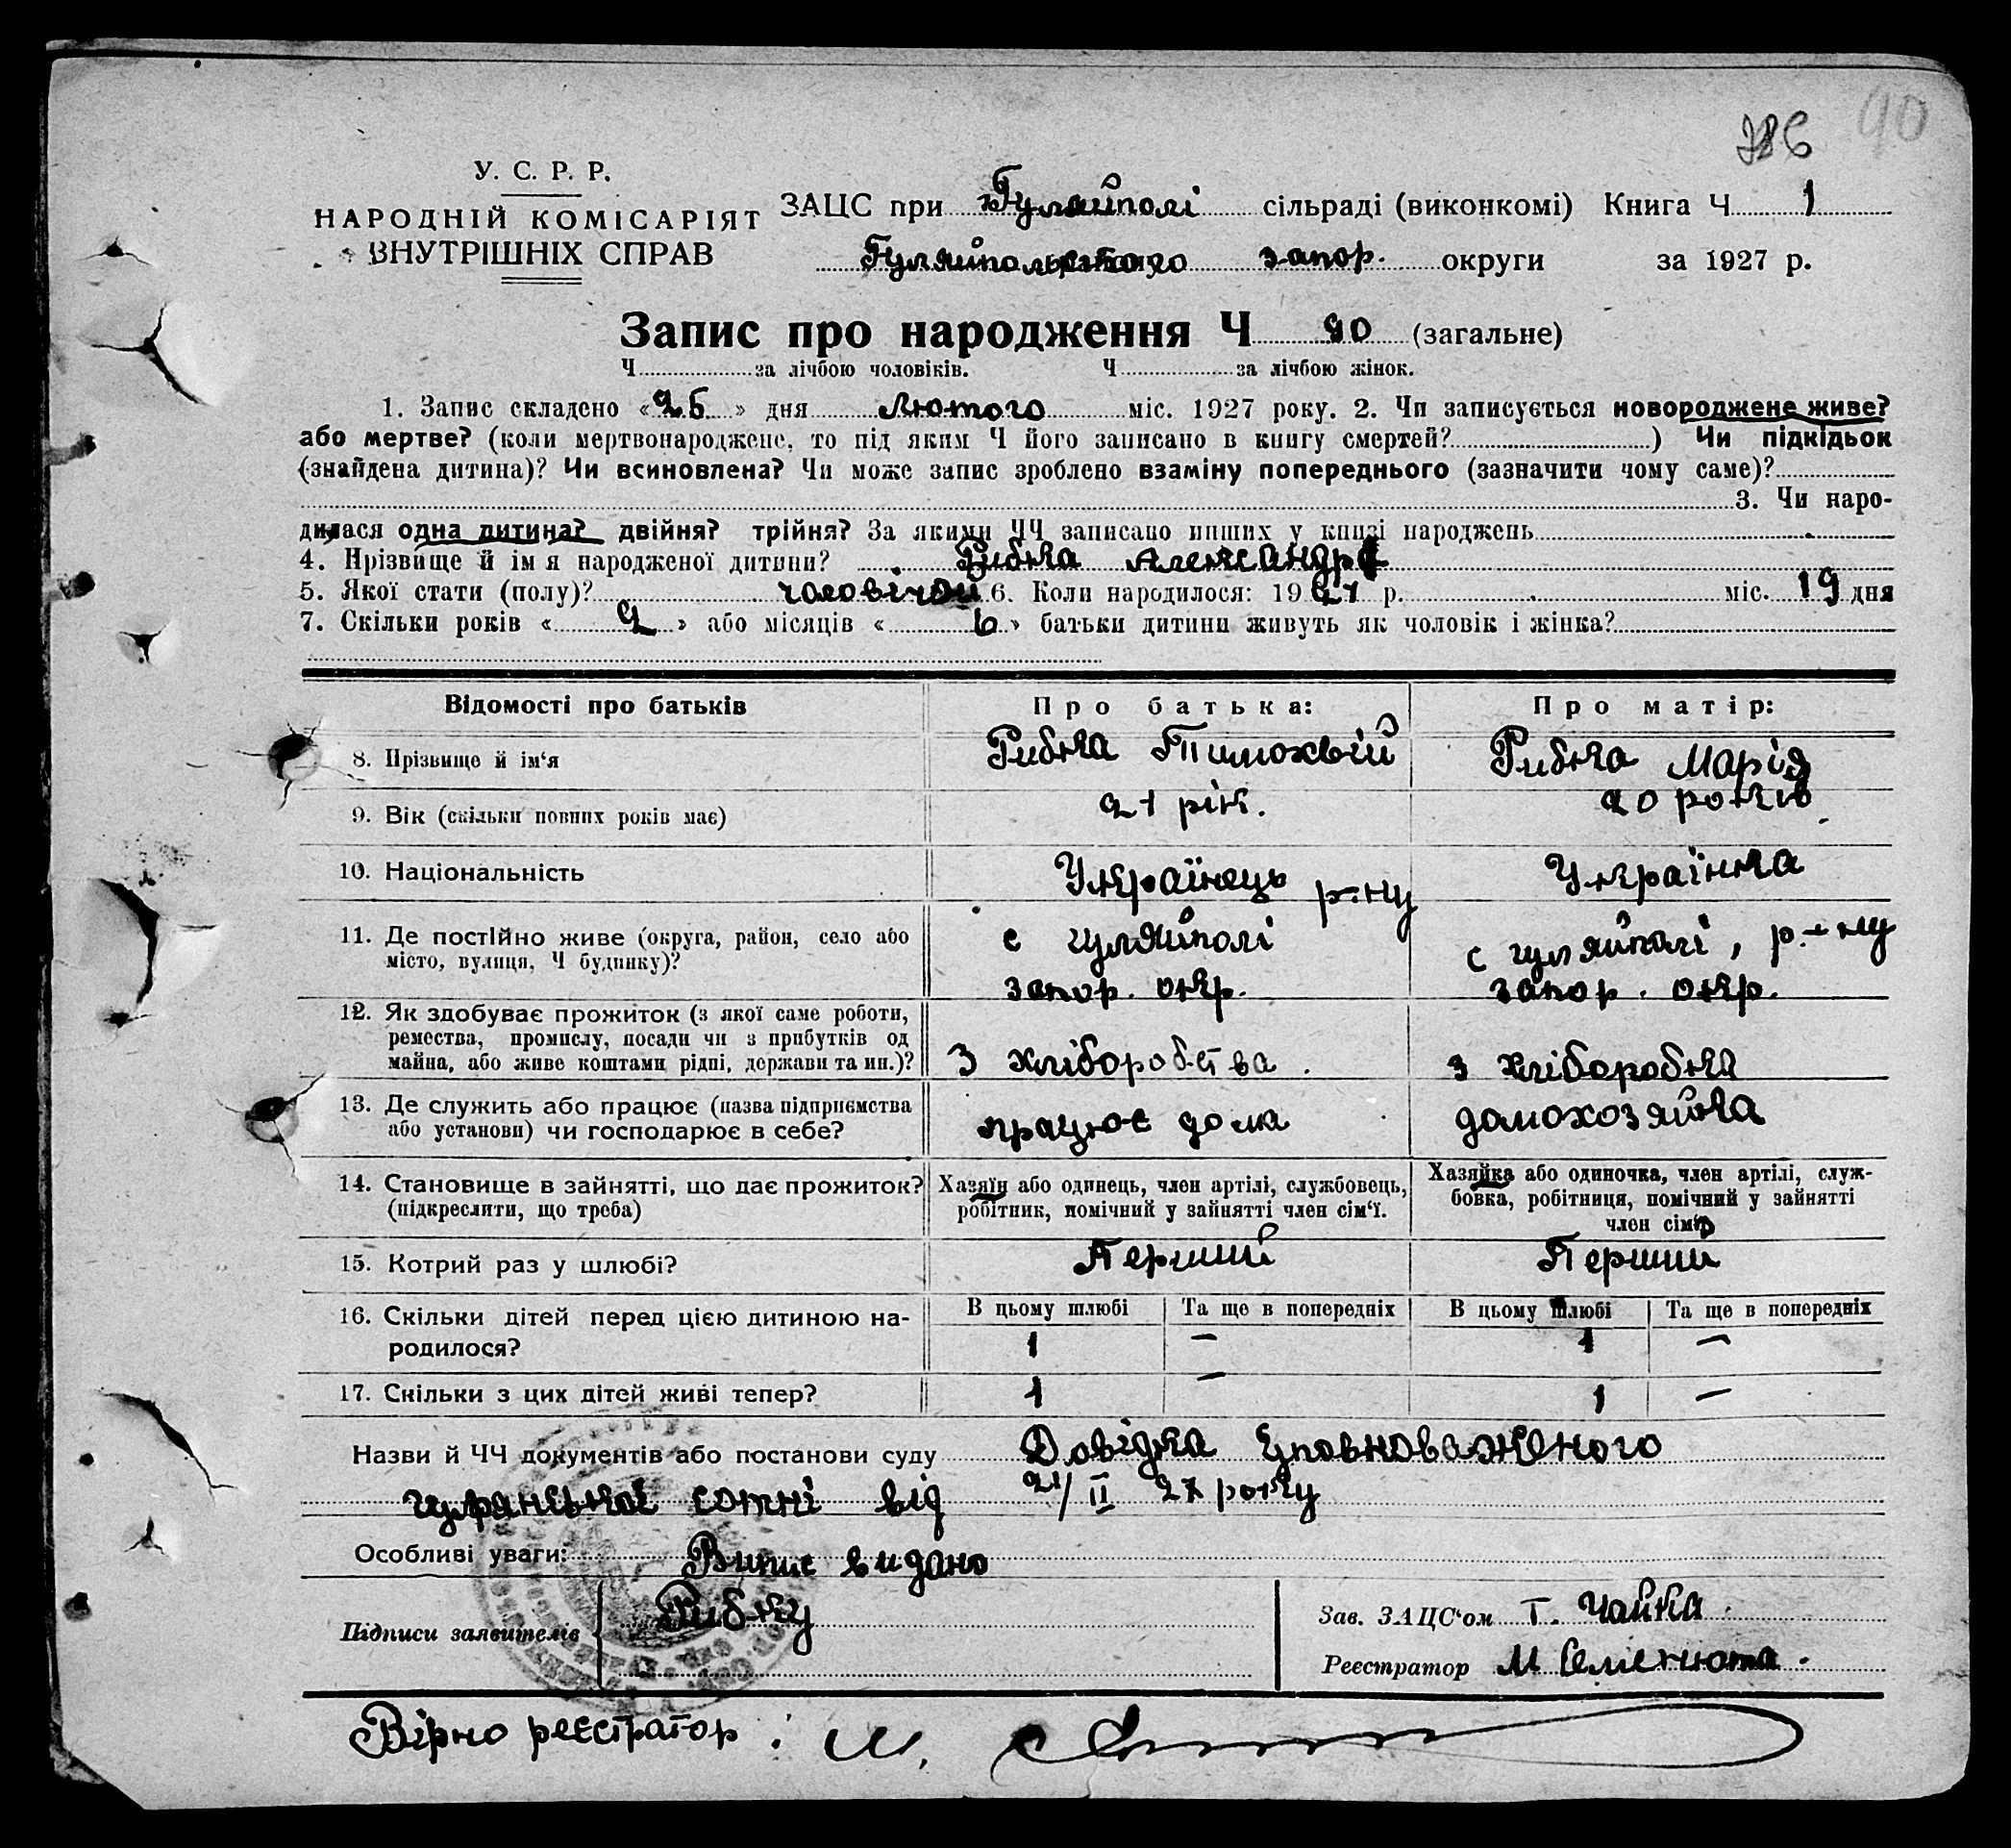 386 90
У. С. Р. Р.
НАРОДНІЙ КОМІСАРІЯТ
ВНУТРІШНІХ СПРАВ
ЗАЦС при Гуляйполі сільраді (виконкомі) Книга Ч 1
Гуляйпольського запор. округи за 1927 р.
Запис про народження Ч 90 (загальне)
Ч за лічбою чоловіків. Ч за лічбою жінок.
1. Запис складено « 25 » дня лютого міс. 1927 року. 2. Чи записується новороджене живе?
або мертве? (коли мертвонароджене, то під яким Ч його записано в книгу смертей? ) Чи підкідьок
(знайдена дитина)? Чи всиновлена? Чи може запис зроблено взаміну попереднього (зазначити чому саме)?
3. Чи наро-
дилася одна дитина? двійня? трійня? За якими ЧЧ записано инших у книзі народжень
4. Прізвище й ім я народженої дитини? Рибка Александр
5. Якої стати (полу)? чоловічой 6. Коли народилося: 19 27 р. міс. 19 дня
7. Скільки років « 2 » або місяців « 6 » батьки дитини живуть як чоловік і жінка?
Відомості про батьків Про батька: Про матір:
8. Прізвище й ім‘я Рибка Тимохвій Рибка Марія
9. Вік (скільки повних років має) 21 рік. 20 років
10. Національність Українець Українка
11. Де постійно живе (округа, район, село або місто, вулиця, Ч будинку)? с гуляйполі р-ну запор. окр. с гуляйполі, р-ну запор. окр.
12. Як здобуває прожиток (з якої саме роботи, ремества, промислу, посади чи з прибутків од майна, або живе коштами рідні, держави та ин.)? З хліборобства. з хліборобка
13. Де служить або працює (назва підприємства або установи) чи господарює в себе? працює дома домохозяйка
14. Становище в зайнятті, що дає прожиток? (підкреслити, що треба) Хазяїн або одинець, член артілі, службовець, робітник, помічний у зайнятті член сім‘ї. Хазяйка або одиночка, член артілі, служ-бовка, робітниця, помічний у зайнятті член сім‘ї
15. Котрий раз у шлюбі? Перший Перший
16. Скільки дітей перед цією дитиною на-родилося? В цьому шлюбі 1 Та ще в попередніх — В цьому шлюбі 1 Та ще в попередніх —
17. Скільки з цих дітей живі тепер? 1 — 1 —
Назви й ЧЧ документів або постанови суду Довідка Уповноваженого
сотні від 21/II 27 року
Особливі уваги: Випис видано
Підписи заявителів Рибку
Зав. ЗАЦС‘ом Т. Чайка.
Реєстратор М Семенюта.
Вірно реєстратор: М.